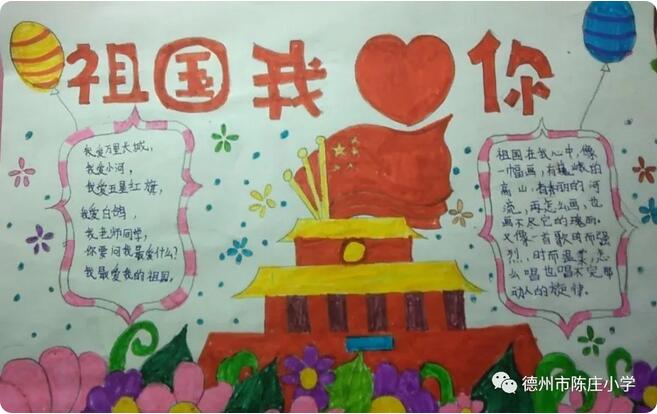 祖国我❤你
我爱万里长城，
我爱小河，
我爱五星红旗，
我爱白鸽，
我老师同学，
你要问我最爱什么？
我最爱我的祖国。
祖国在我心中，像
一幅画，有巍峨的
高山，有秀丽的河
流，再怎么画，也
画不尽它的瑰丽。
又像一首歌时而强
烈，时而温柔，怎
么唱也唱不完那
动人的旋律。
德州市陈庄小学